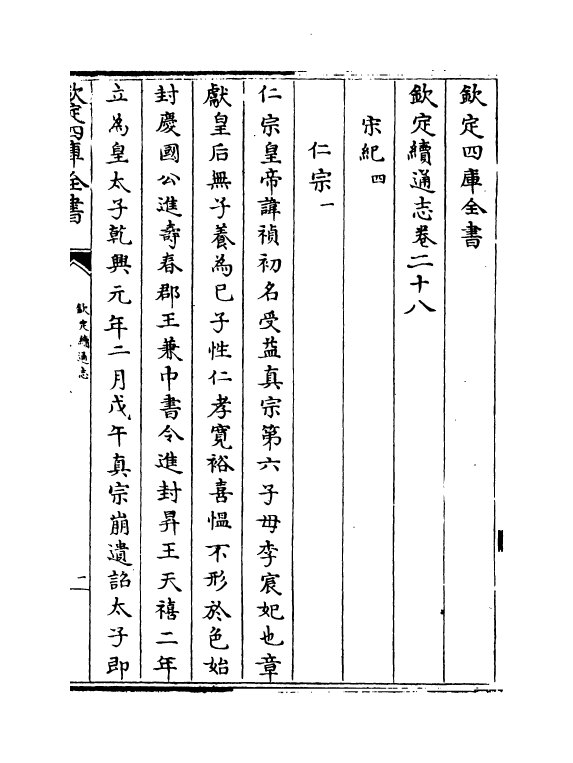 欽定四庫全書
欽定續通志卷二十八
宋紀四
仁宗一
仁宗皇帝諱禎初名受益真宗第六子母李宸妃也章
獻皇后無子養為己子性仁孝寛裕喜愠不形於色始
封慶國公進壽春郡王兼中書令進封昇王天禧二年
立為皇太子乾興元年二月戊午真宗崩遺詔太子即
欽定四庫全書
欽定續通志